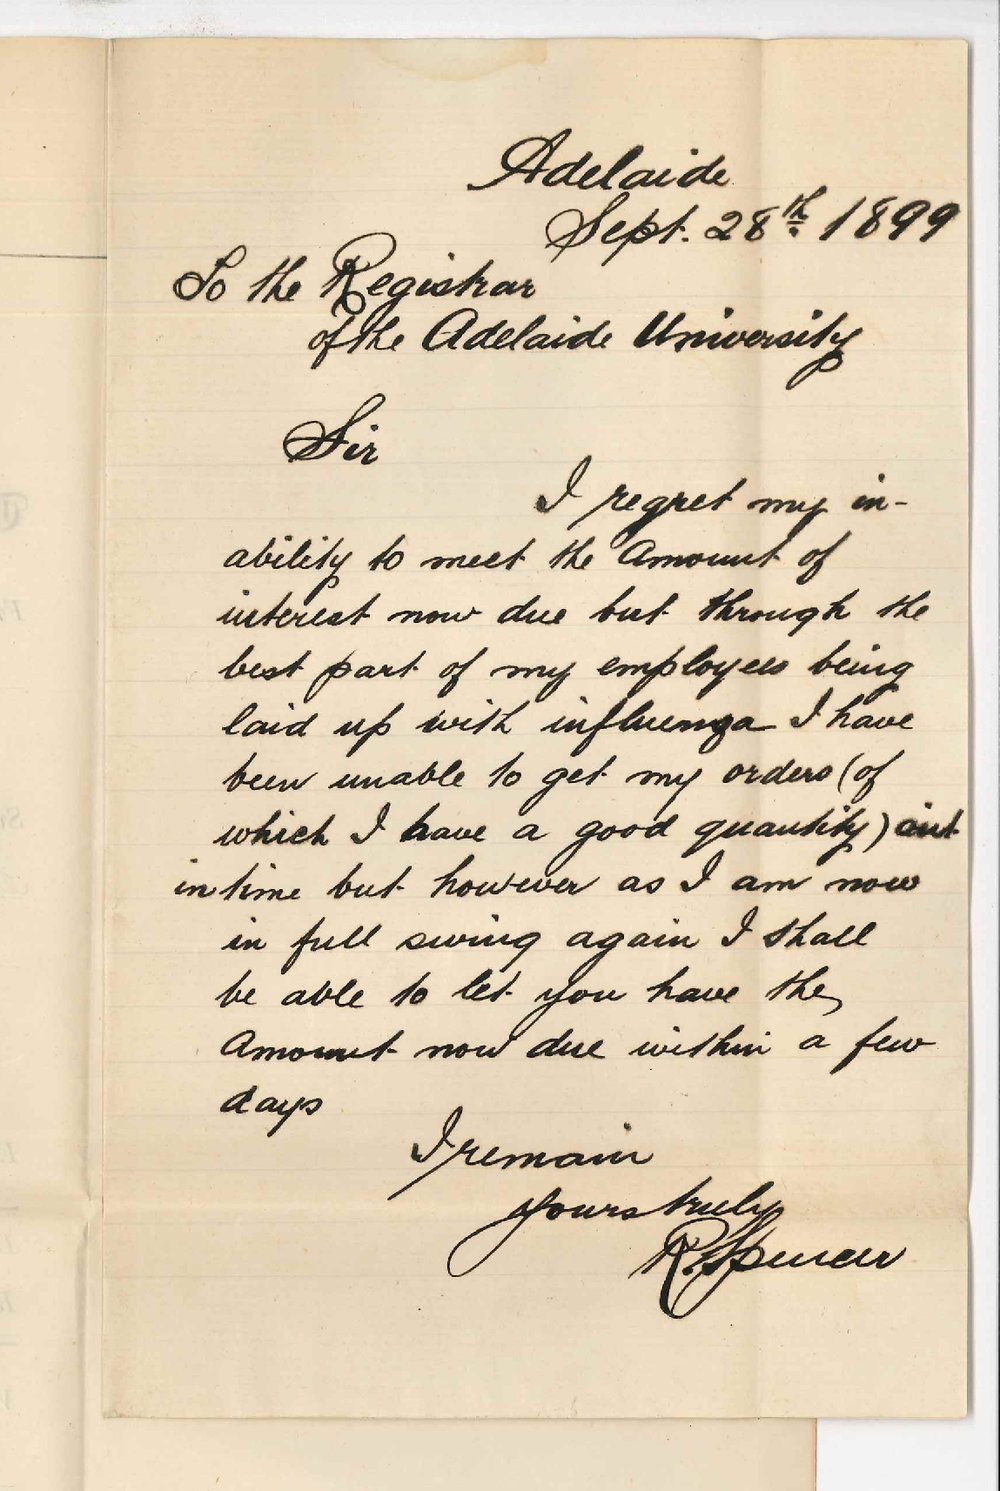 Adelaide
Sept. 28th 1899
To the Registrar
of the Adelaide University
Sir
I regret my in-
ability to meet the Amount of
interest now due but through the
best part of my employees being
laid up with influenza I have
been unable to get my orders (of
which I have a good quantity) out
in time but however as I am now
in full swing again I shall
be able to let you have the
Amount now due within a few
days
I remain
yours truly
R. Spencer